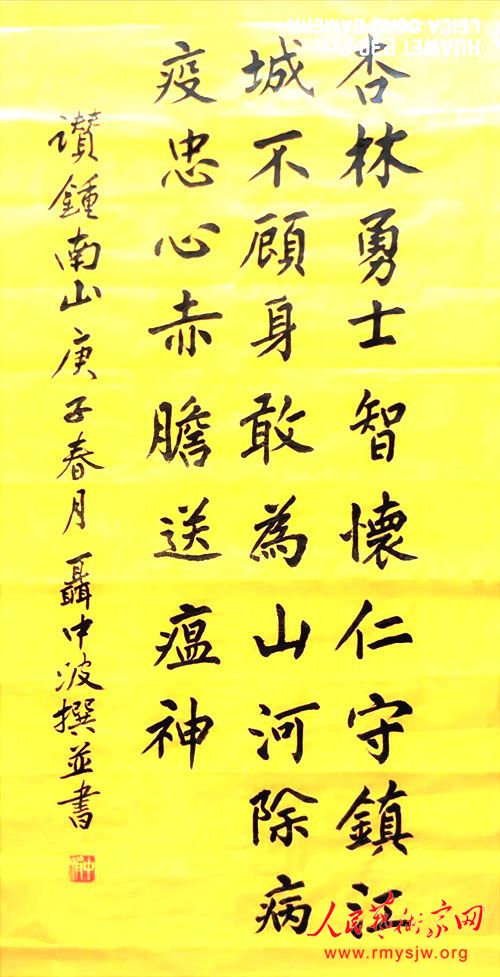 杏林勇士智懷仁守鎮江
城不顧身敢為山河除病
疫忠心赤膽送瘟神
讃鍾南山庚子春月聶中波撰並書
HUAWEI P30 PRO
LEICA QUAD CAMERA
人民藝术家网
www.rmysjw.org